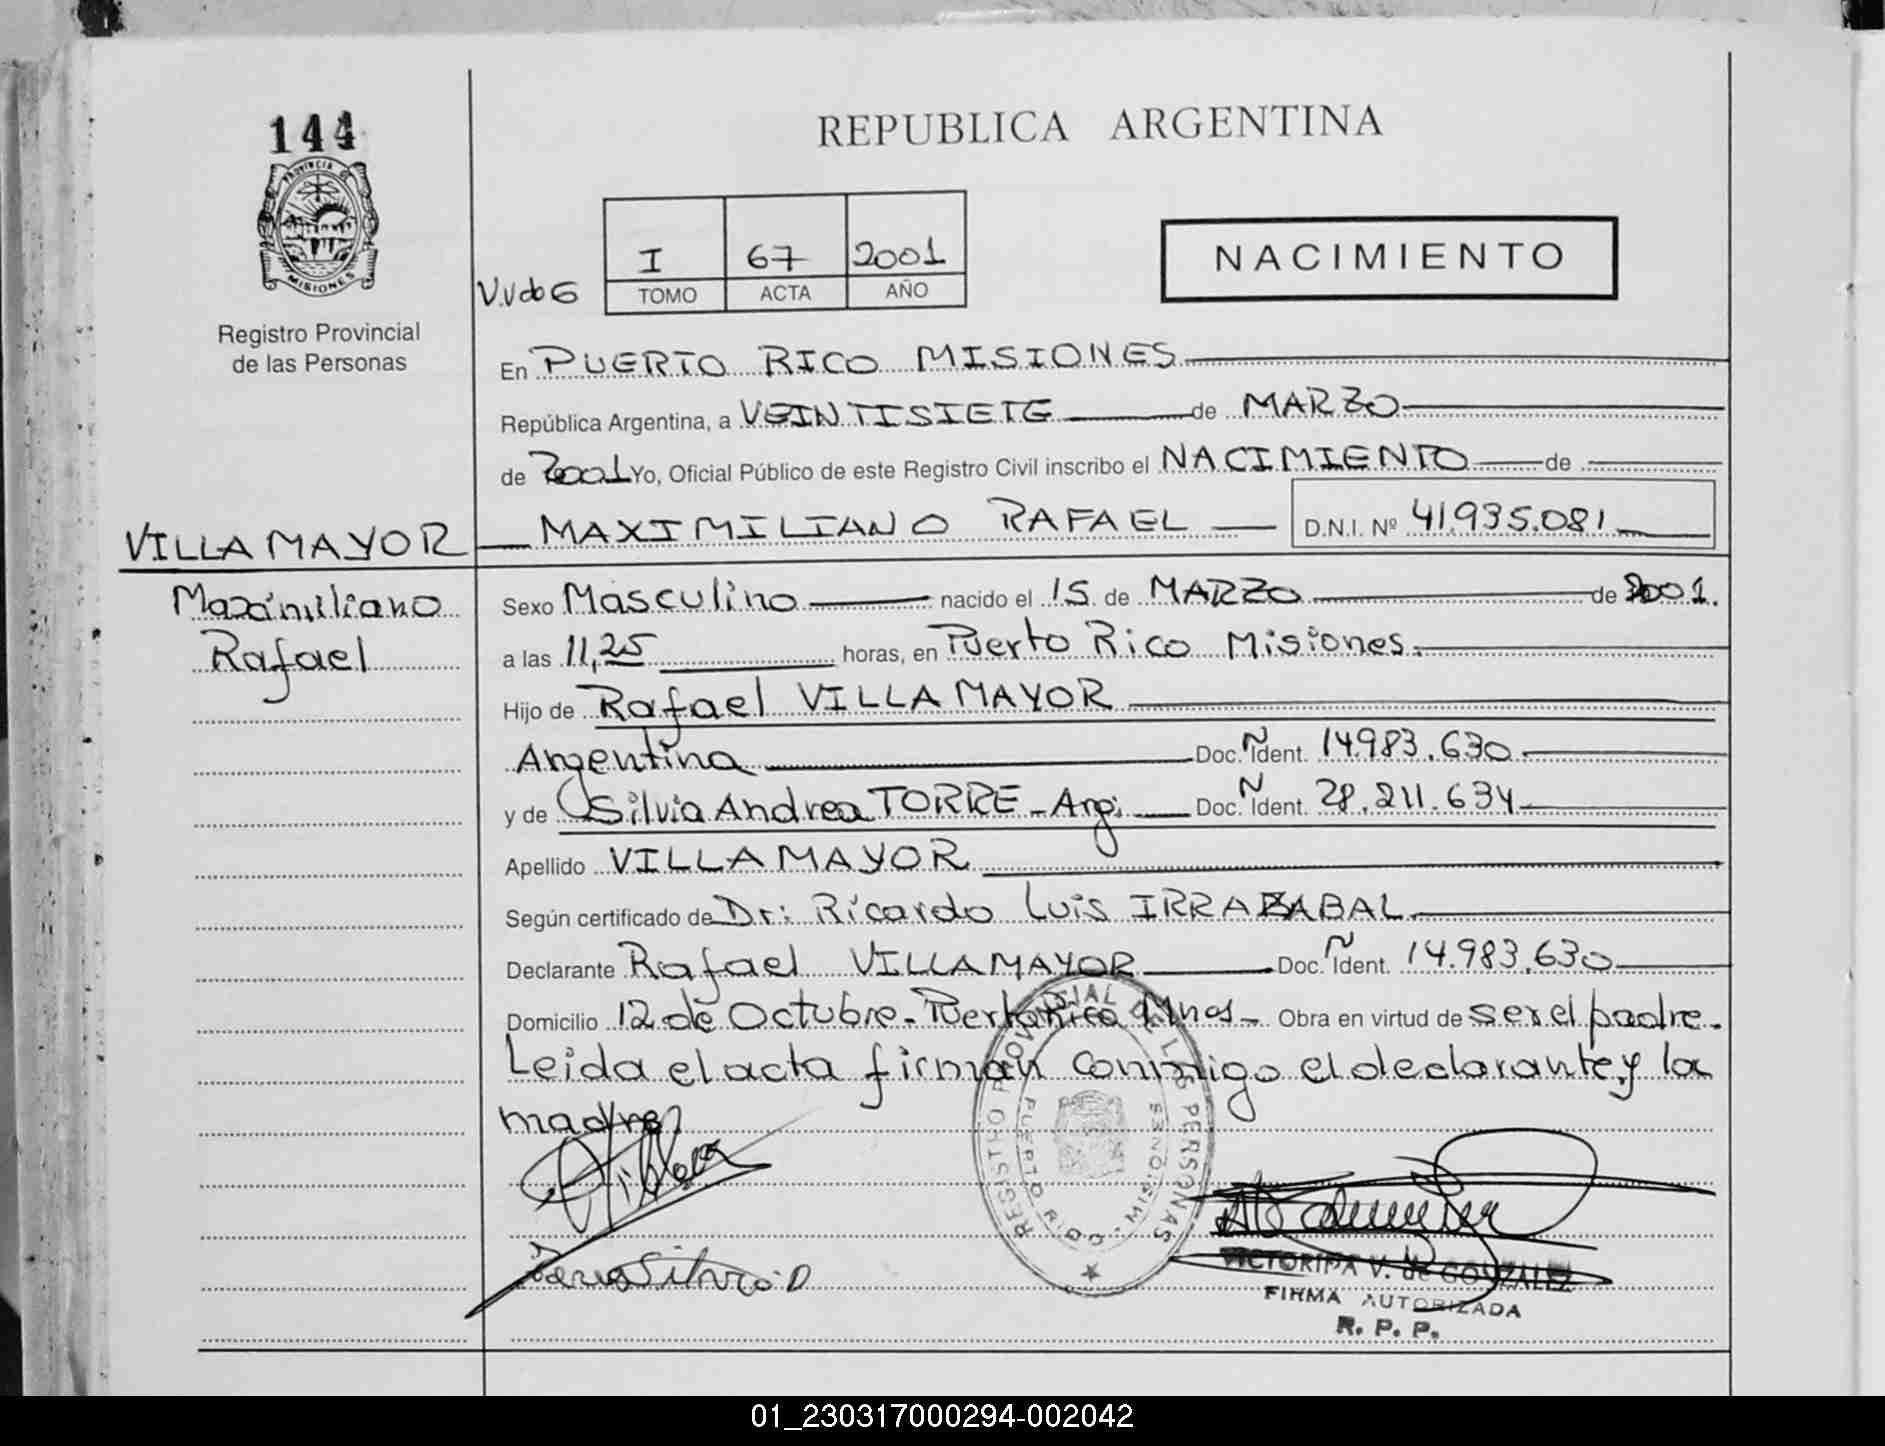 144
PROVINCIA
MISIONES
Registro Provincial
de las Personas
REPUBLICA ARGENTINA
I 67 2001
TOMO ACTA AÑO
NACIMIENTO
En PUERTO RICO MISIONES
República Argentina, a VEINTISIETE de MARZO
de 2001 Yo, Oficial Público de este Registro Civil inscribo el NACIMIENTO de
VILLAMAYOR MAXIMILIANO RAFAEL D.N.I. Nº 41.935.081
Maximiliano
Rafael
Sexo Masculino nacido el 15 de MARZO de 2001.
a las 11,25 horas, en Puerto Rico Misiones.
Hijo de Rafael VILLAMAYOR
Argentina Doc. Ñ Ident. 14.983.630
y de Silvia Andrea TORRE - Arg. Doc. Ñ Ident. 28.211.634
Apellido VILLAMAYOR
Según certificado de Dr: Ricardo Luis IRRAZABAL
Declarante Rafael VILLAMAYOR Doc. Ñ Ident. 14.983.630
Domicilio 12 de Octubre - Puerto Rico Mnes - Obra en virtud de ser el padre.
Leida el acta firman conmigo el declarante y la
madre
REGISTRO PROVINCIAL DE LAS PERSONAS
PUERTO RICO - MISIONES
VICTORIPA V. de GONZALEZ
FIRMA AUTORIZADA
R. P. P.
01_230317000294-002042